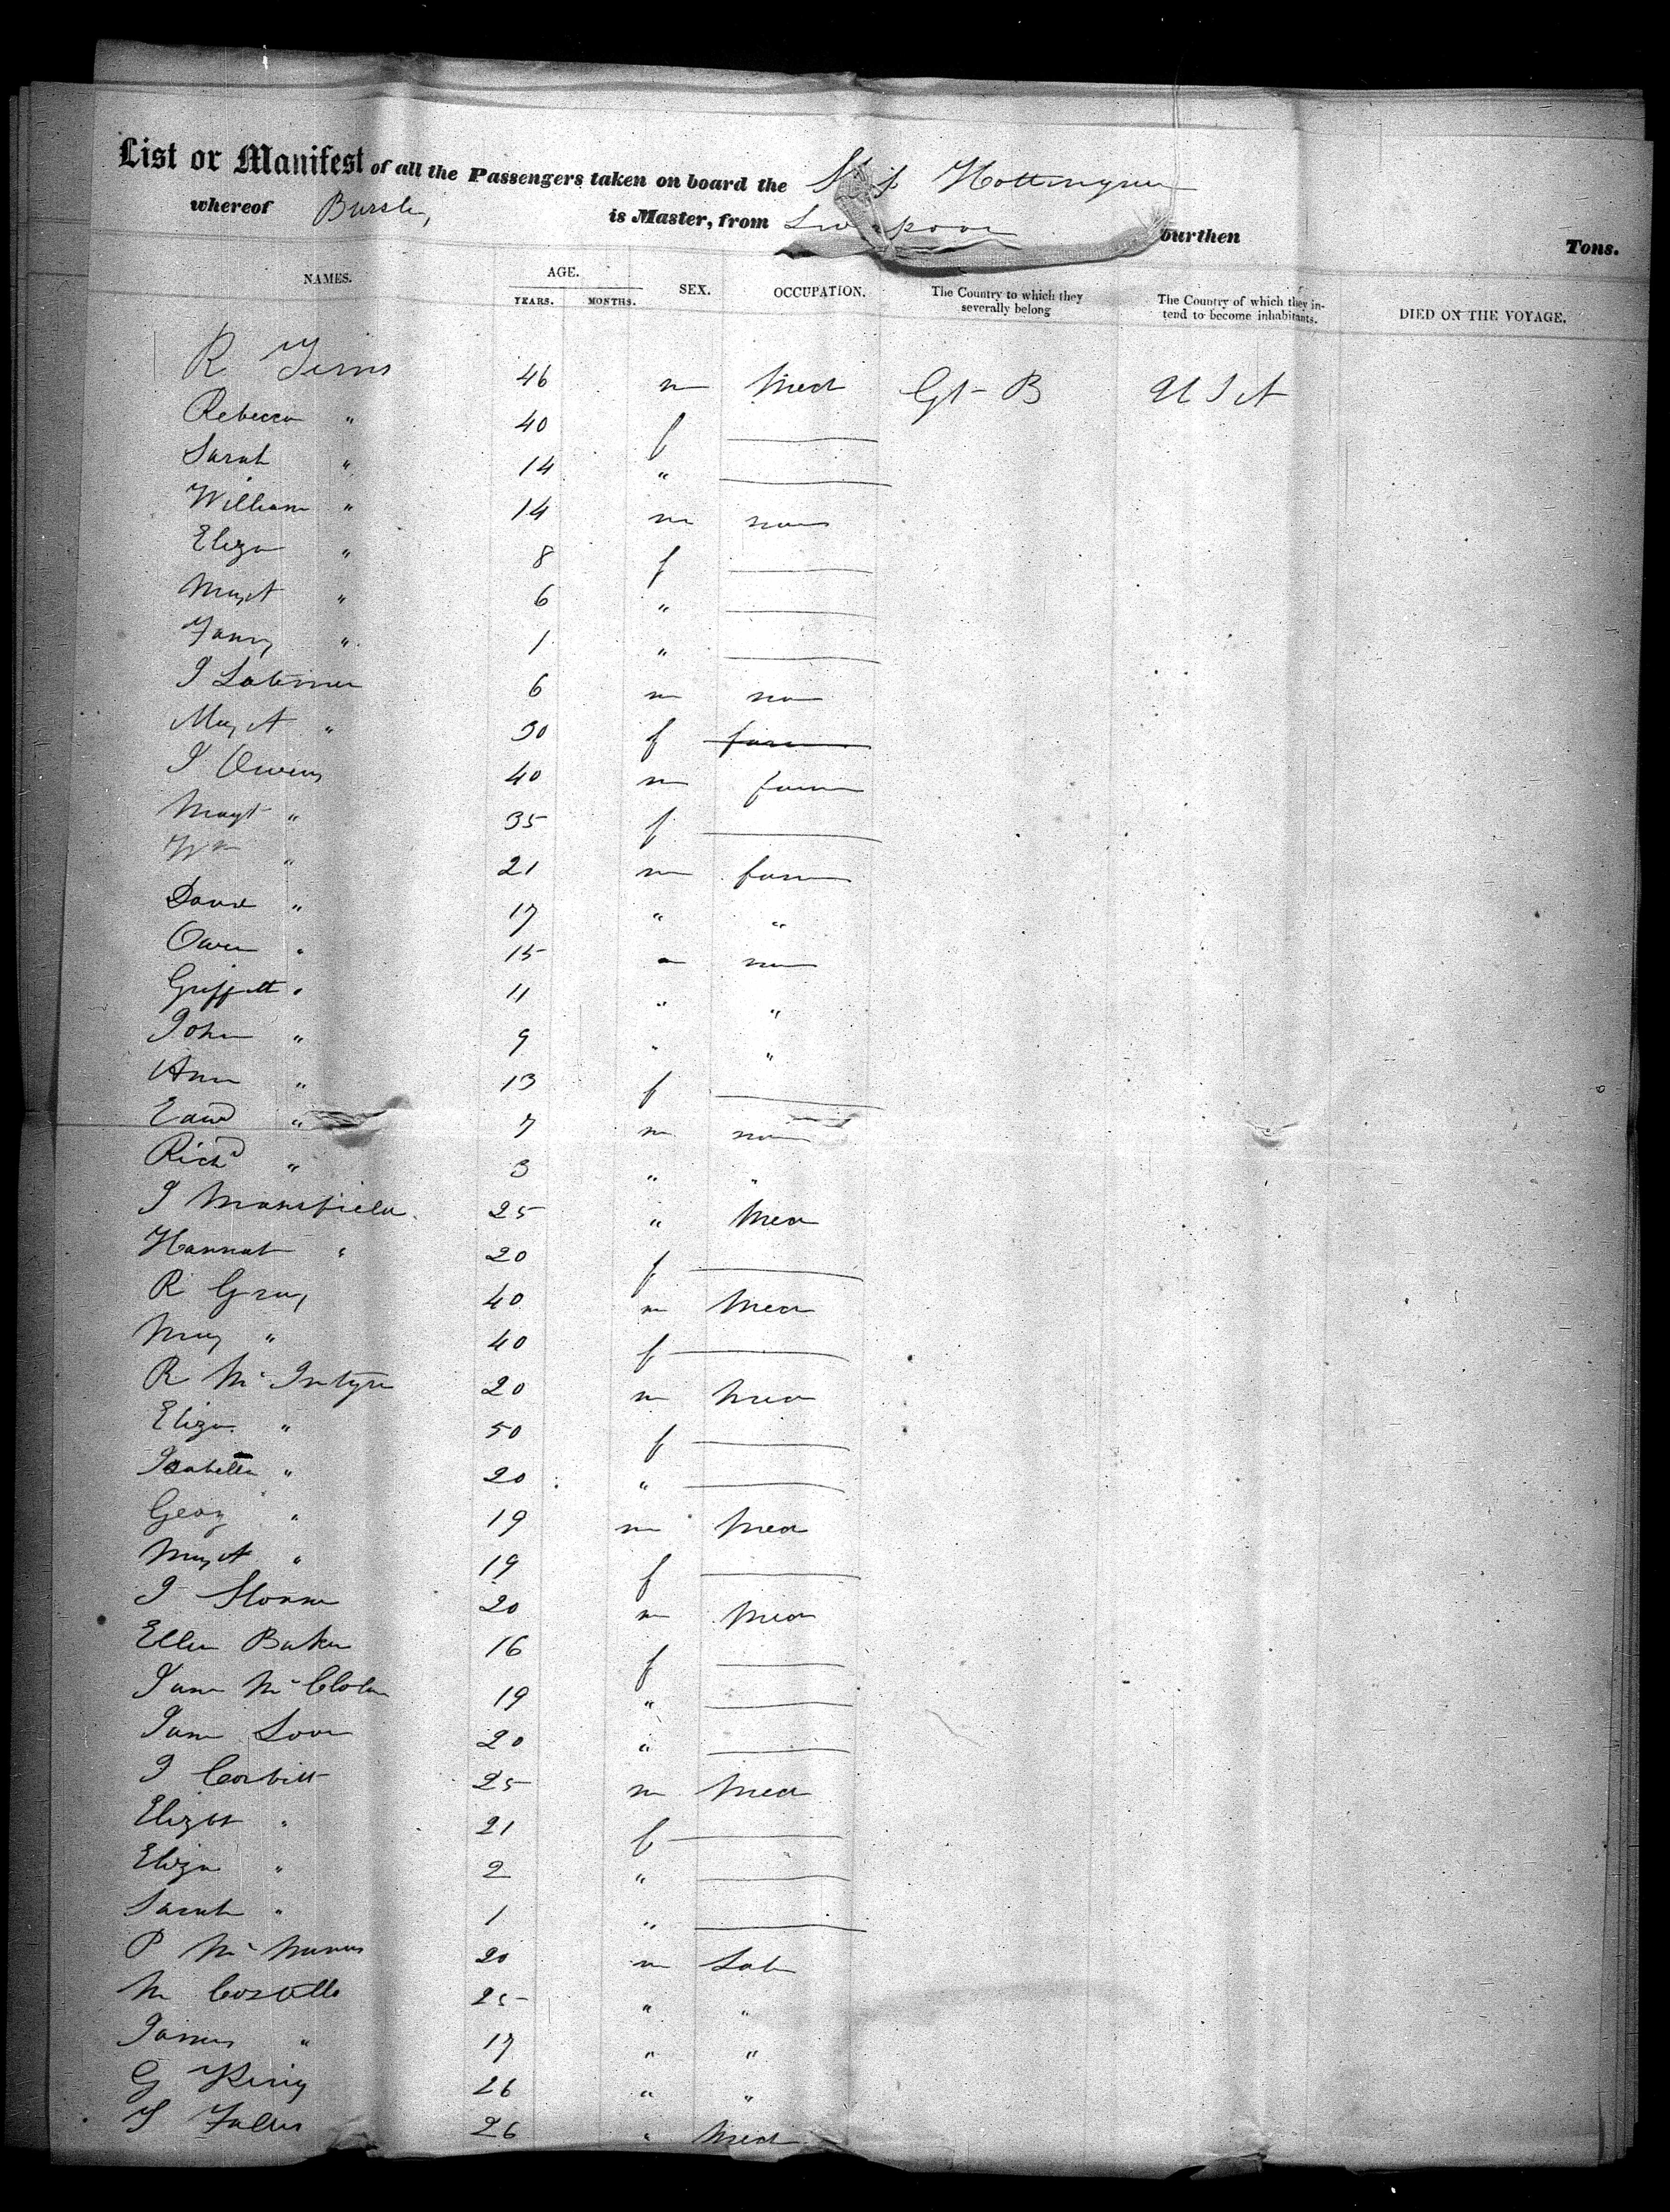 List or Manifest of all the Passengers taken on board the Hottinguer
whereof Bursley is Master, from Liverpool burthen Tons.
NAMES. AGE. YEARS. MONTHS. SEX. OCCUPATION. The Country to which they severally belong The Country of which they intend to become inhabitants. DIED ON THE VOYAGE.
R 46 m Mech Gt B U S A
Rebecca " 40 f
Sarah " 14 "
William " 14 m none
Eliza " 8 f
Mary A " 6 "
Fanny " 1 "
J Latimer 6 m none
Mary A " 30 f farmer
J Owens 40 m farmer
Magt " 35 f
Wm " 21 m farmer
David " 17 " "
Owen " 15 " none
Griffith " 11 " "
John " 9 " "
Ann " 13 f
Edwd " 7 m none
Richd " 3 " "
J Mansfield 25 " Mech
Hannah " 20 f
R Gray 40 m Mech
Mary " 40 f
R McIntyre 20 m Mech
Eliza " 50 f
Isabella " 20 "
Georg " 19 m Mech
Mary A " 19 f
J 20 m Mech
Ellen Baker 16 f
Jane 19 "
Jane Love 20 "
J Corbitt 25 m Mech
Elizbt " 21 f
Eliza " 2 "
Sarah " 1 "
P McManus 20 m Lab
M Costello 25 " "
James " 17 " "
G King 26 " "
26 " Mech